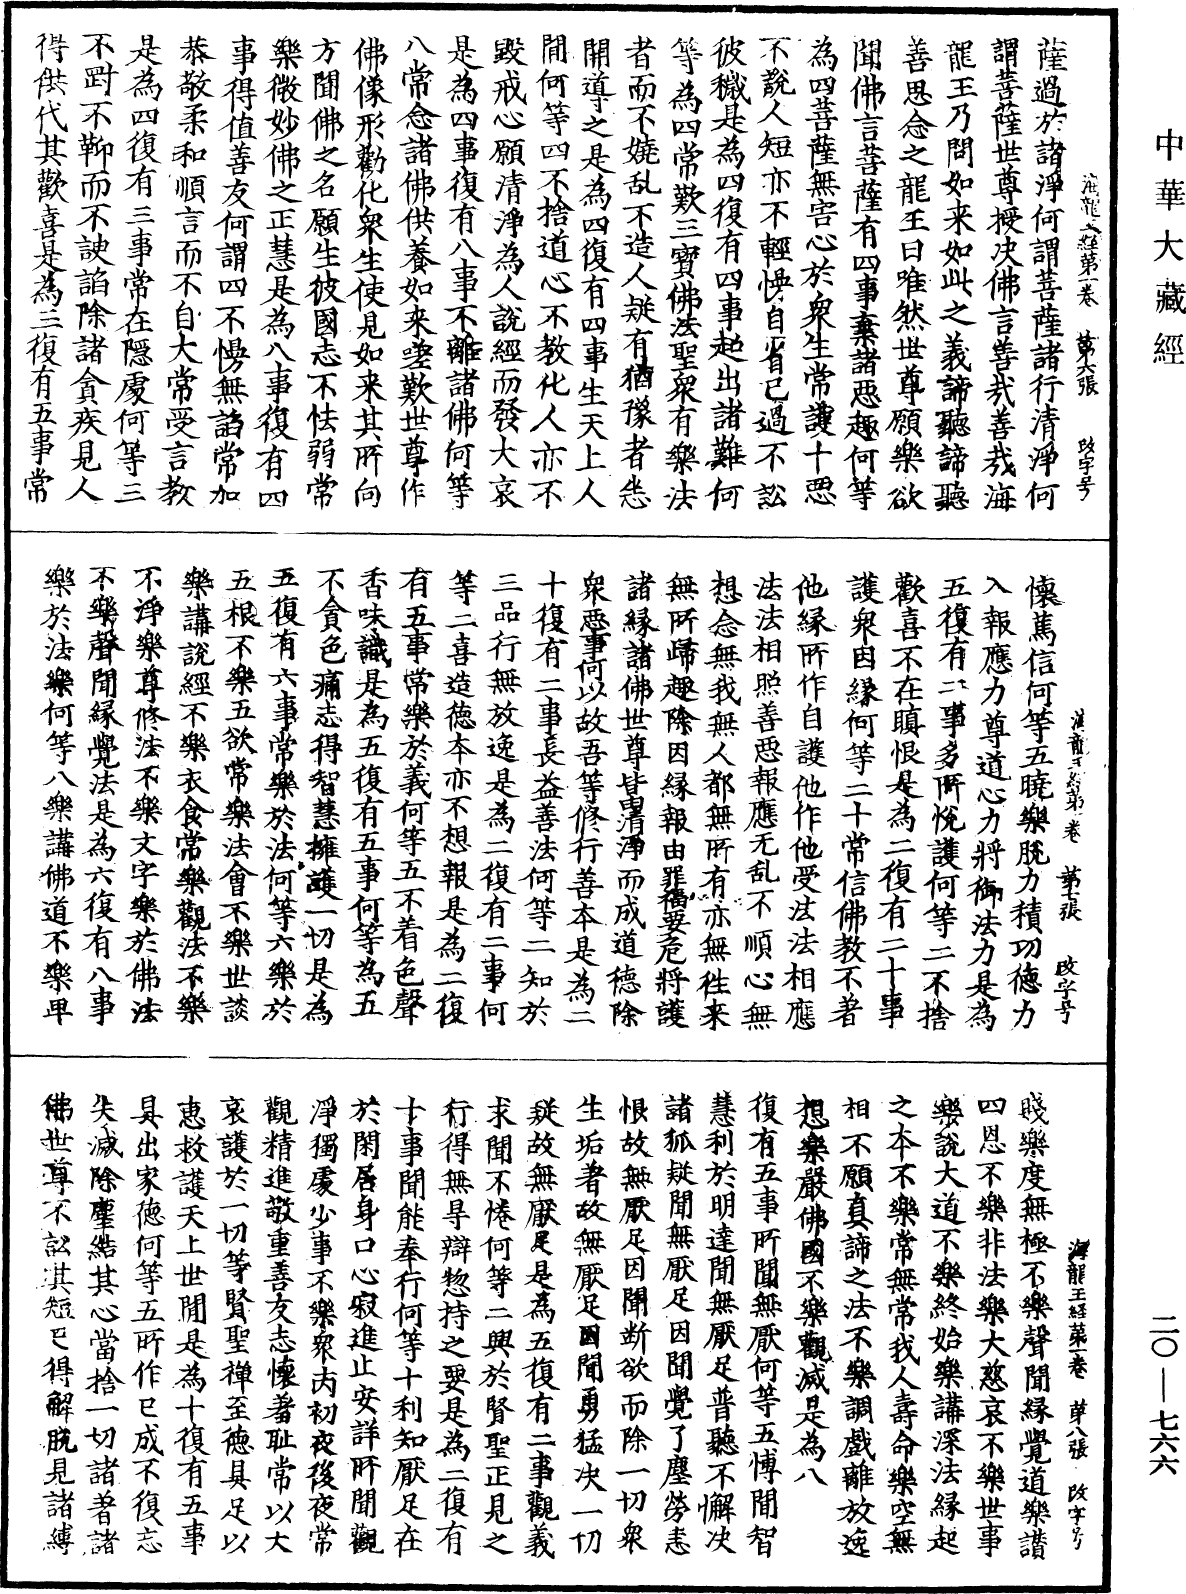 中華大藏經
薩過於諸淨何謂菩薩諸行清淨何
謂菩薩世尊授决佛言善㢤善㢤海
龍王乃問如来如此之義諦聽諦聽
善思念之龍王曰唯然世尊願樂欲
聞佛言菩薩有四事棄諸惡趣何等
為四菩薩無害心於衆生常護十惡
不說人短亦不輕慢自省己過不訟
彼穢是為四復有四事超出諸難何
等為四常歎三寳佛法聖衆有樂法
者而不嬈乱不造人疑有猶豫者悉
開導之是為四復有四事生天上人
間何等四不捨道心不教化人亦不
毀戒心願清淨為人說經而發大哀
是為四事復有八事不離諸佛何等
八常念諸佛供養如来嗟歎世尊作
佛像形勸化衆生使見如来其所向
方聞佛之名願生彼國志不怯弱常
樂微妙佛之正慧是為八事復有四
事得值善友何謂四不慢無諂常加
恭敬柔和順言而不自大常受言教
是為四復有三事常在隱處何等三
不鬪不鞹而不諛諂除諸貪疾見人
得供代其歡喜是為三復有五事常
海龍王經第一卷 第六張 改字号
懷篤信何等五曉樂脫力積功德力
入報應力尊道心力將御法力是為
五復有二事多所悅護何等二不捨
歡喜不在瞋恨是為二復有二十事
護衆因緣何等二十常信佛教不著
他緣所作自護他作他受法法相應
法法相照善惡報應无乱不順心無
想念無我無人都無所有亦無往来
無所歸趣除因緣報由罪福要危將護
諸緣諸佛世尊皆由清淨而成道德除
衆惡事何以故吾等修行善本是為二
十復有二事長益善法何等二知於
三品行無放逸是為二復有二事何
等二喜造德本亦不想報是為二復
有五事常樂於義何等五不着色聲
香味識是為五復有五事何等為五
不貪色痛志得智慧擁護一切是為
五復有六事常樂於法何等六樂於
五根不樂五欲常樂法會不樂世談
樂講說經不樂衣食常樂觀法不樂
不淨樂尊修法不樂文字樂於佛法
不樂聲聞緣覺法是為六復有八事
樂於法樂何等八樂講佛道不樂甲
海龍王經第一卷 第七張 改字号
賤樂度無極不樂聲聞緣覺道樂讃
四恩不樂非法樂大慈哀不樂世事
樂說大道不樂終始樂講深法緣起
之本不樂常無常我人壽命樂空無
相不願真諦之法不樂調戲離放逸
想樂嚴佛國不樂觀滅是為八
復有五事所聞無厭何等五博聞智
慧利於明達聞無厭足普聽不懈决
諸狐疑聞無厭足因聞覺了塵勞恚
恨故無厭足因聞断欲而除一切衆
生垢著故無厭足因聞勇猛决一切
疑故無厭足是為五復有二事觀義
求聞不惓何等二興於賢聖正見之
行得無㝵辯惣持之要是為二復有
十事聞能奉行何等十利知厭足在
於閑居身口心寂進止安詳所聞觀
淨獨處少事不樂衆丙初夜後夜常
觀精進敬重善友志懷著耻常以大
哀護於一切等賢聖禪至德具足以
惠救護天上世間是為十復有五事
具出家德何等五所作已成不復忘
失滅除塵結其心當捨一切諸著諸
佛世尊不訟其短已得解脫見諸縛
海龍王經第一卷 第八張 改字号
二〇—七六六